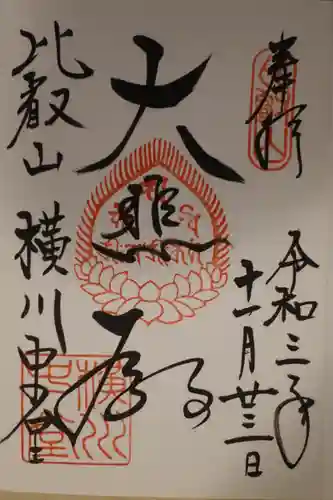 奉拝
令和三年
十一月廿三日
大悲殿
比叡山
横川中堂
横川中堂